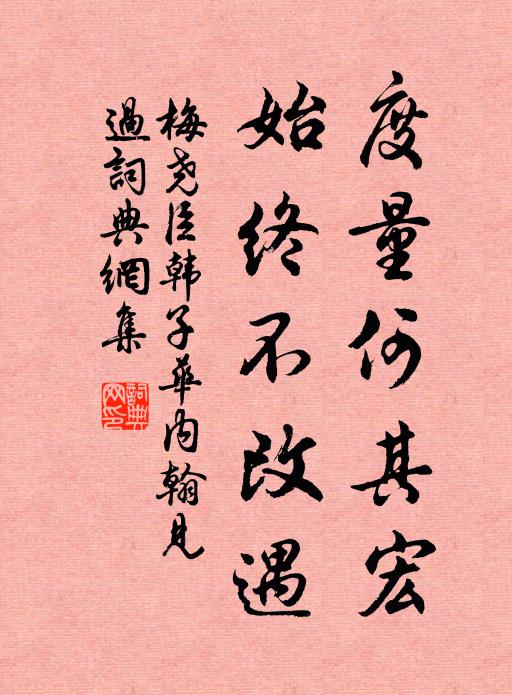 度量何其宏
始终不改遇
梅尧臣韩子華内翰見
過詞典網集
詞典
网印